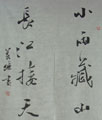 小雨藏山
長江接天